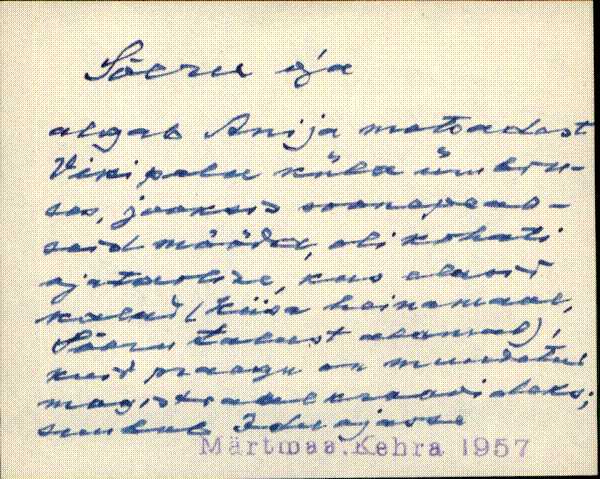 Sõeru oja
algab Anija metsadest
Vikipalu küla ümbru-
ses, jooksis soonepeal-
seid mööda, oli kohati
ajutaoline, kus elasid
kalad (Kiisa heinamaal,
Sõeru talust alamal),
kuid praegu on muudetud
magistraalkraaviks;
suubub Idu ajasse
Märtmaa. Kehra 1957